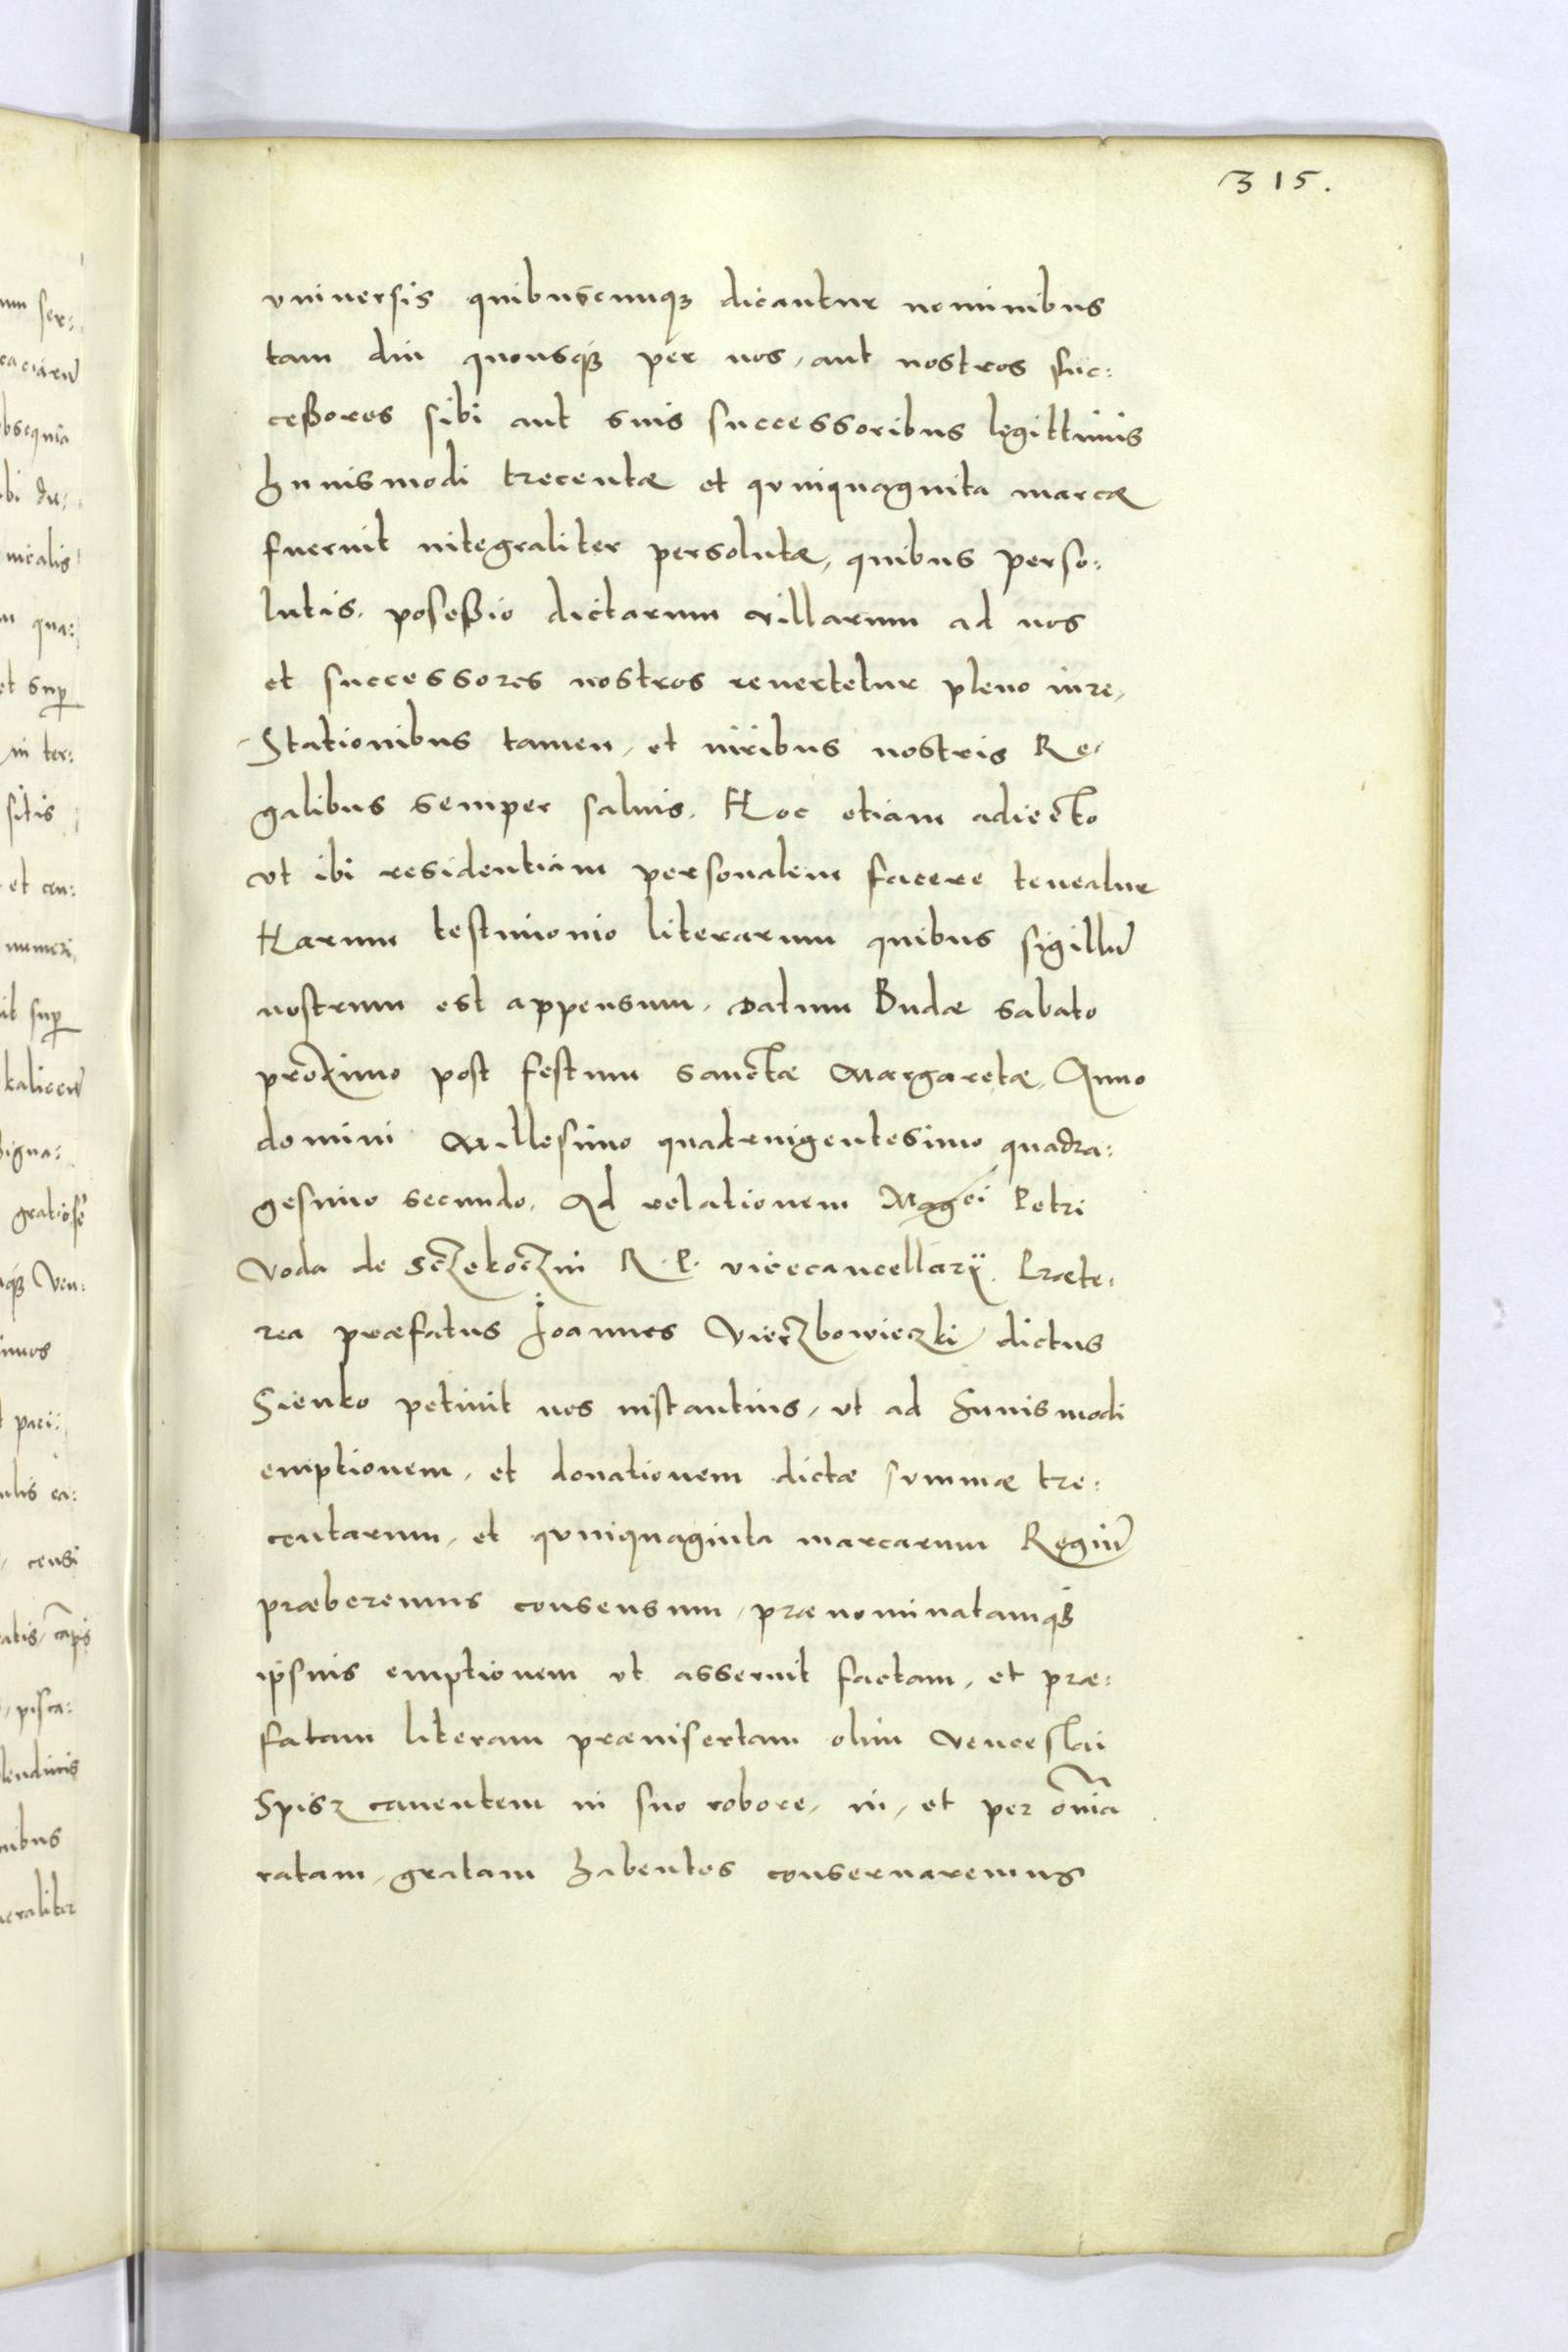 315.
vniuersis quibuscunqꝫ dicantur nominibus
tam diu quousqꝫ per nos, aut nostros suc:
ceßores sibi aut suis successoribus legittimis
huiusmodi trecentæ et quinquaginta marcæ
fuerint integraliter persolutæ, quibus perso:
lutis, poseßio dictarum villarum ad nos
et successores nostros reuertetur pleno iure,
Stationibus tamen, et iuribus nostris Re,
galibus semper saluis. Hoc etiam adiecto
vt ibi residentiam personalem facere teneatur
Harum testimonio literarum quibus sigillũ
nostrum est appensum. Datum Budæ sabato
proximo post festum sanctæ Margaretæ, Anno
domini Millesimo quadringentesimo quadra:
gesimo secundo. Ad relationem Magci Petri
Voda de Sczekoczin R. P. vicecancellarij. Præte:
rea præfatus Joannes Vierzbowieczki dictus
Sienko petiuit nos instantius, vt ad huiusmodi
emptionem, et donationem dictæ summæ tre:
centarum, et quinquaginta marcarum Regiũ
præberemus consensum, prænominatamqꝫ
ipsius emptionem vt asseruit factam, et præ:
fatam literam præinsertam olim Venceslai
Spisz cauentem in suo robore, in, et per om̃ia
ratam, gratam habentes conseruaremus